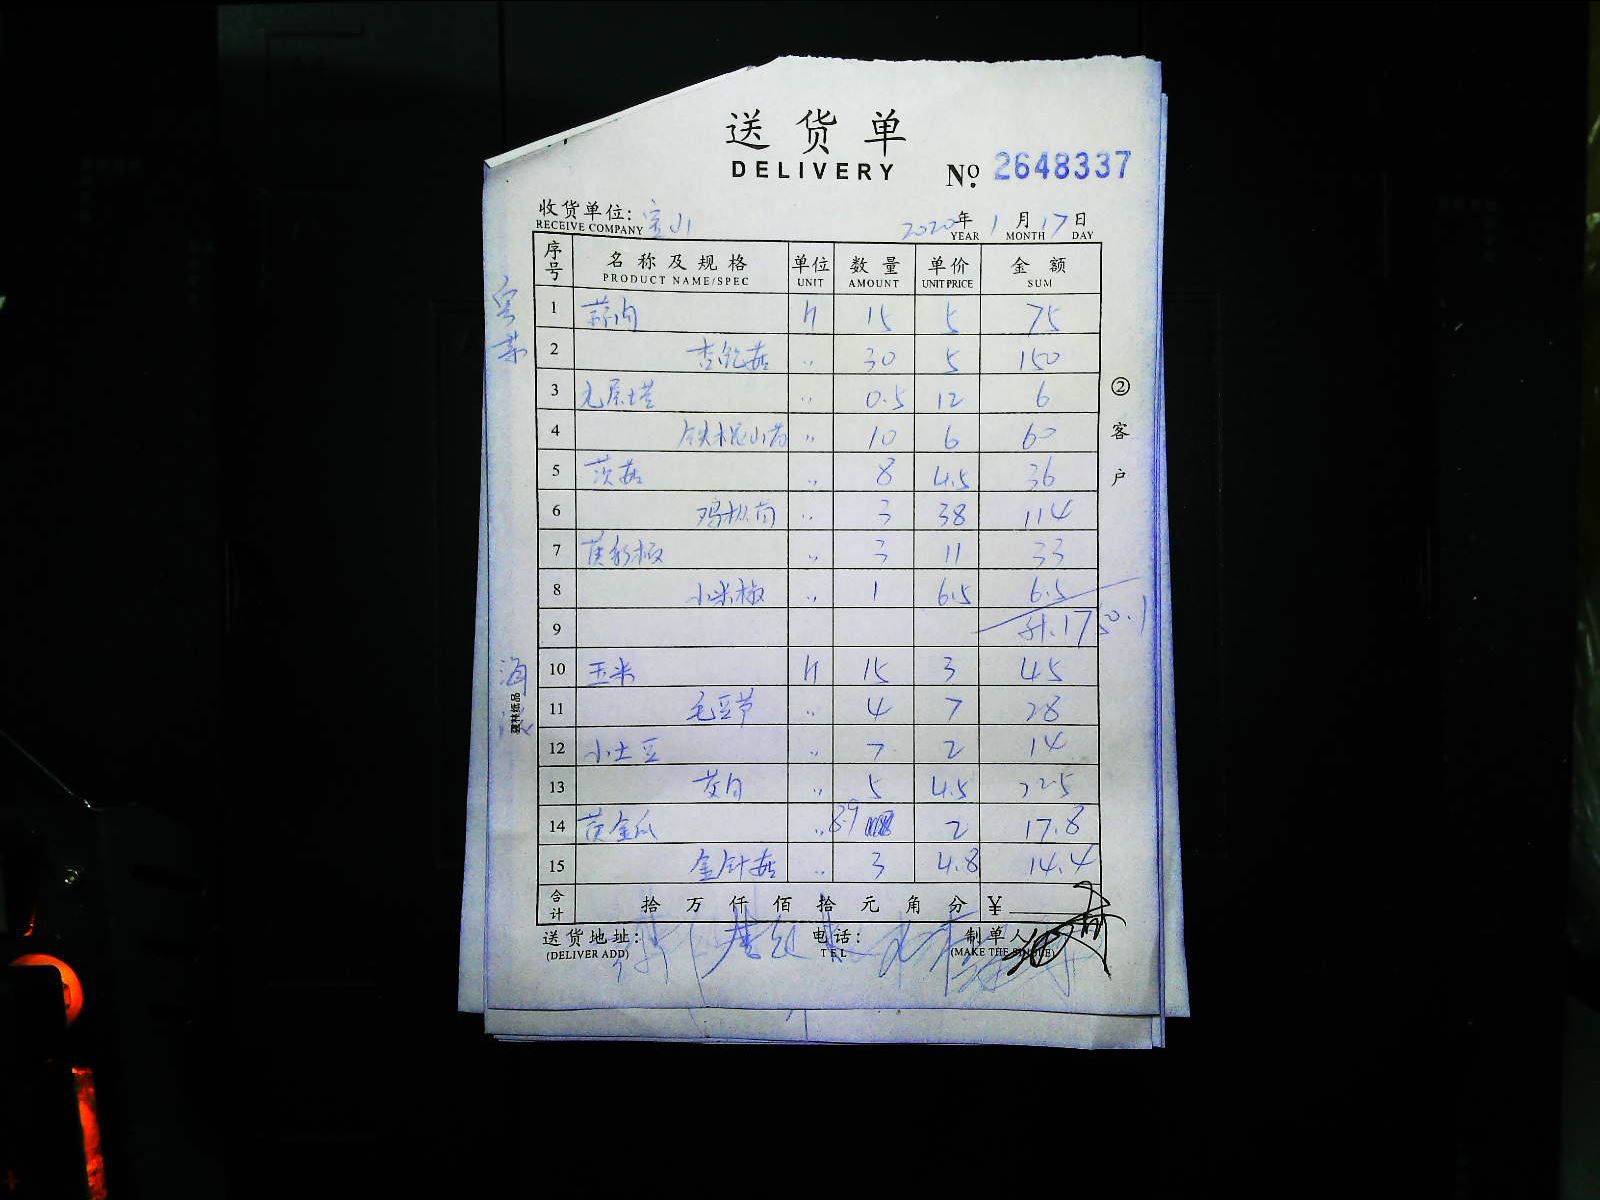 送货单
DELIVERY
No. 2648337
收货单位: 宝山 2020年 1月 17日
RECEIVE COMPANY YEAR MONTH DAY
序号 名称及规格 单位 数量 单价 金额
PRODUCT NAME/SPEC UNIT AMOUNT UNIT PRICE SUM
1 蒜肉 斤 15 5 75
2 杏鲍菇 〃 30 5 150
3 九层塔 〃 0.5 12 6
4 铁棍山药 〃 10 6 60
5 茨菇 〃 8 4.5 36
6 鸡枞菌 〃 3 38 114
7 〃 3 11 33
8 小米椒 〃 1 6.5 6.5
9 1750.1
10 玉米 斤 15 3 45
11 毛豆节 〃 4 7 28
12 小土豆 〃 7 2 14
13 茭白 〃 5 4.5 22.5
14 黄金瓜 〃 8.9 2 17.8
15 金针菇 〃 3 4.8 14.4
合计 拾 万 仟 佰 拾 元 角 分 ¥
送货地址: 电话: 制单人
(DELIVER ADD) TEL (MAKE THE
②客户